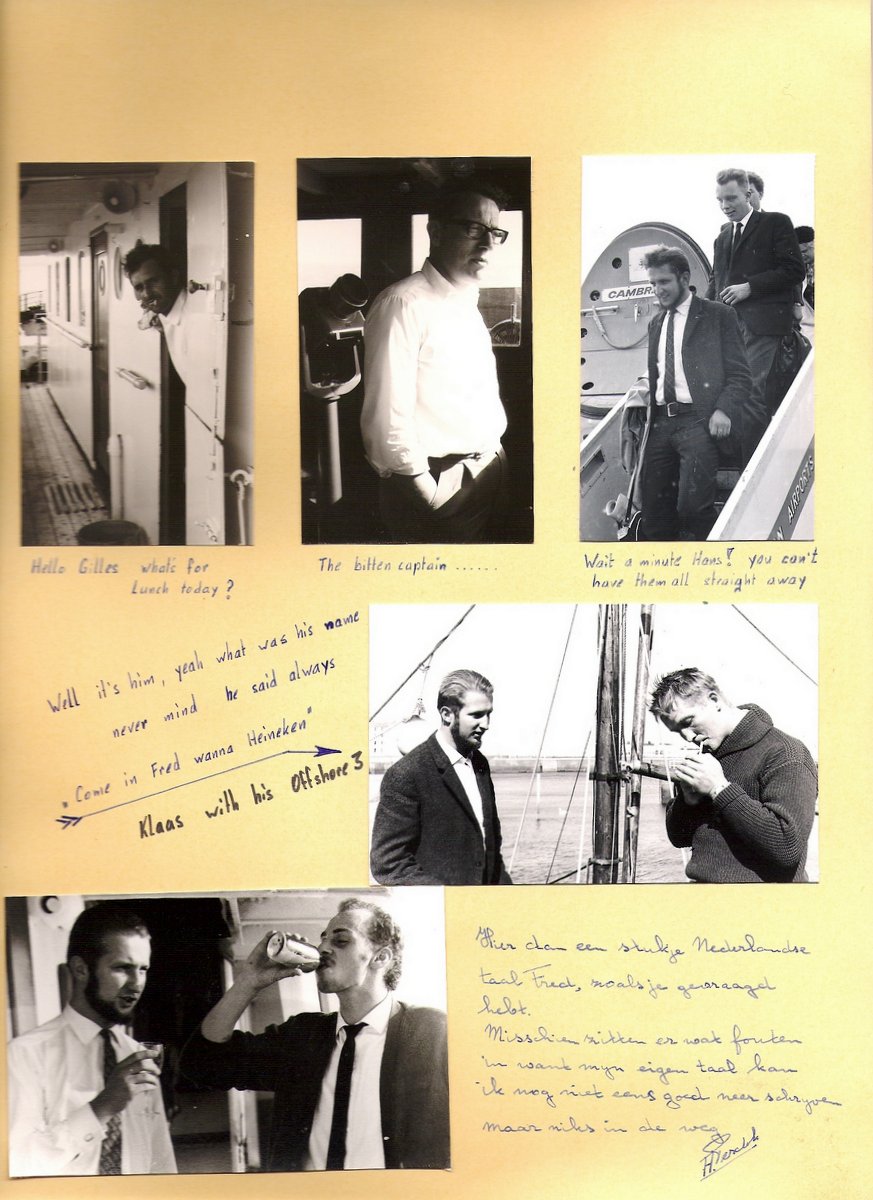 CAMBR
N AIRPORTS
Hello Gilles what's for
Lunch today?
The bitten captain ......
Wait a minute Hans! you can't
have them all straight away
Well it's him, yeah what was his name
never mind he said always
"Come in Fred wanna Heineken"
Klaas with his Offshore 3
Hier dan een stukje Nederlandse
taal Fred, zoals je gevraagd
hebt.
Misschien zitten er wat fouten
in want mijn eigen taal kan
ik nog niet eens goed neer schryven
maar niks in de weg